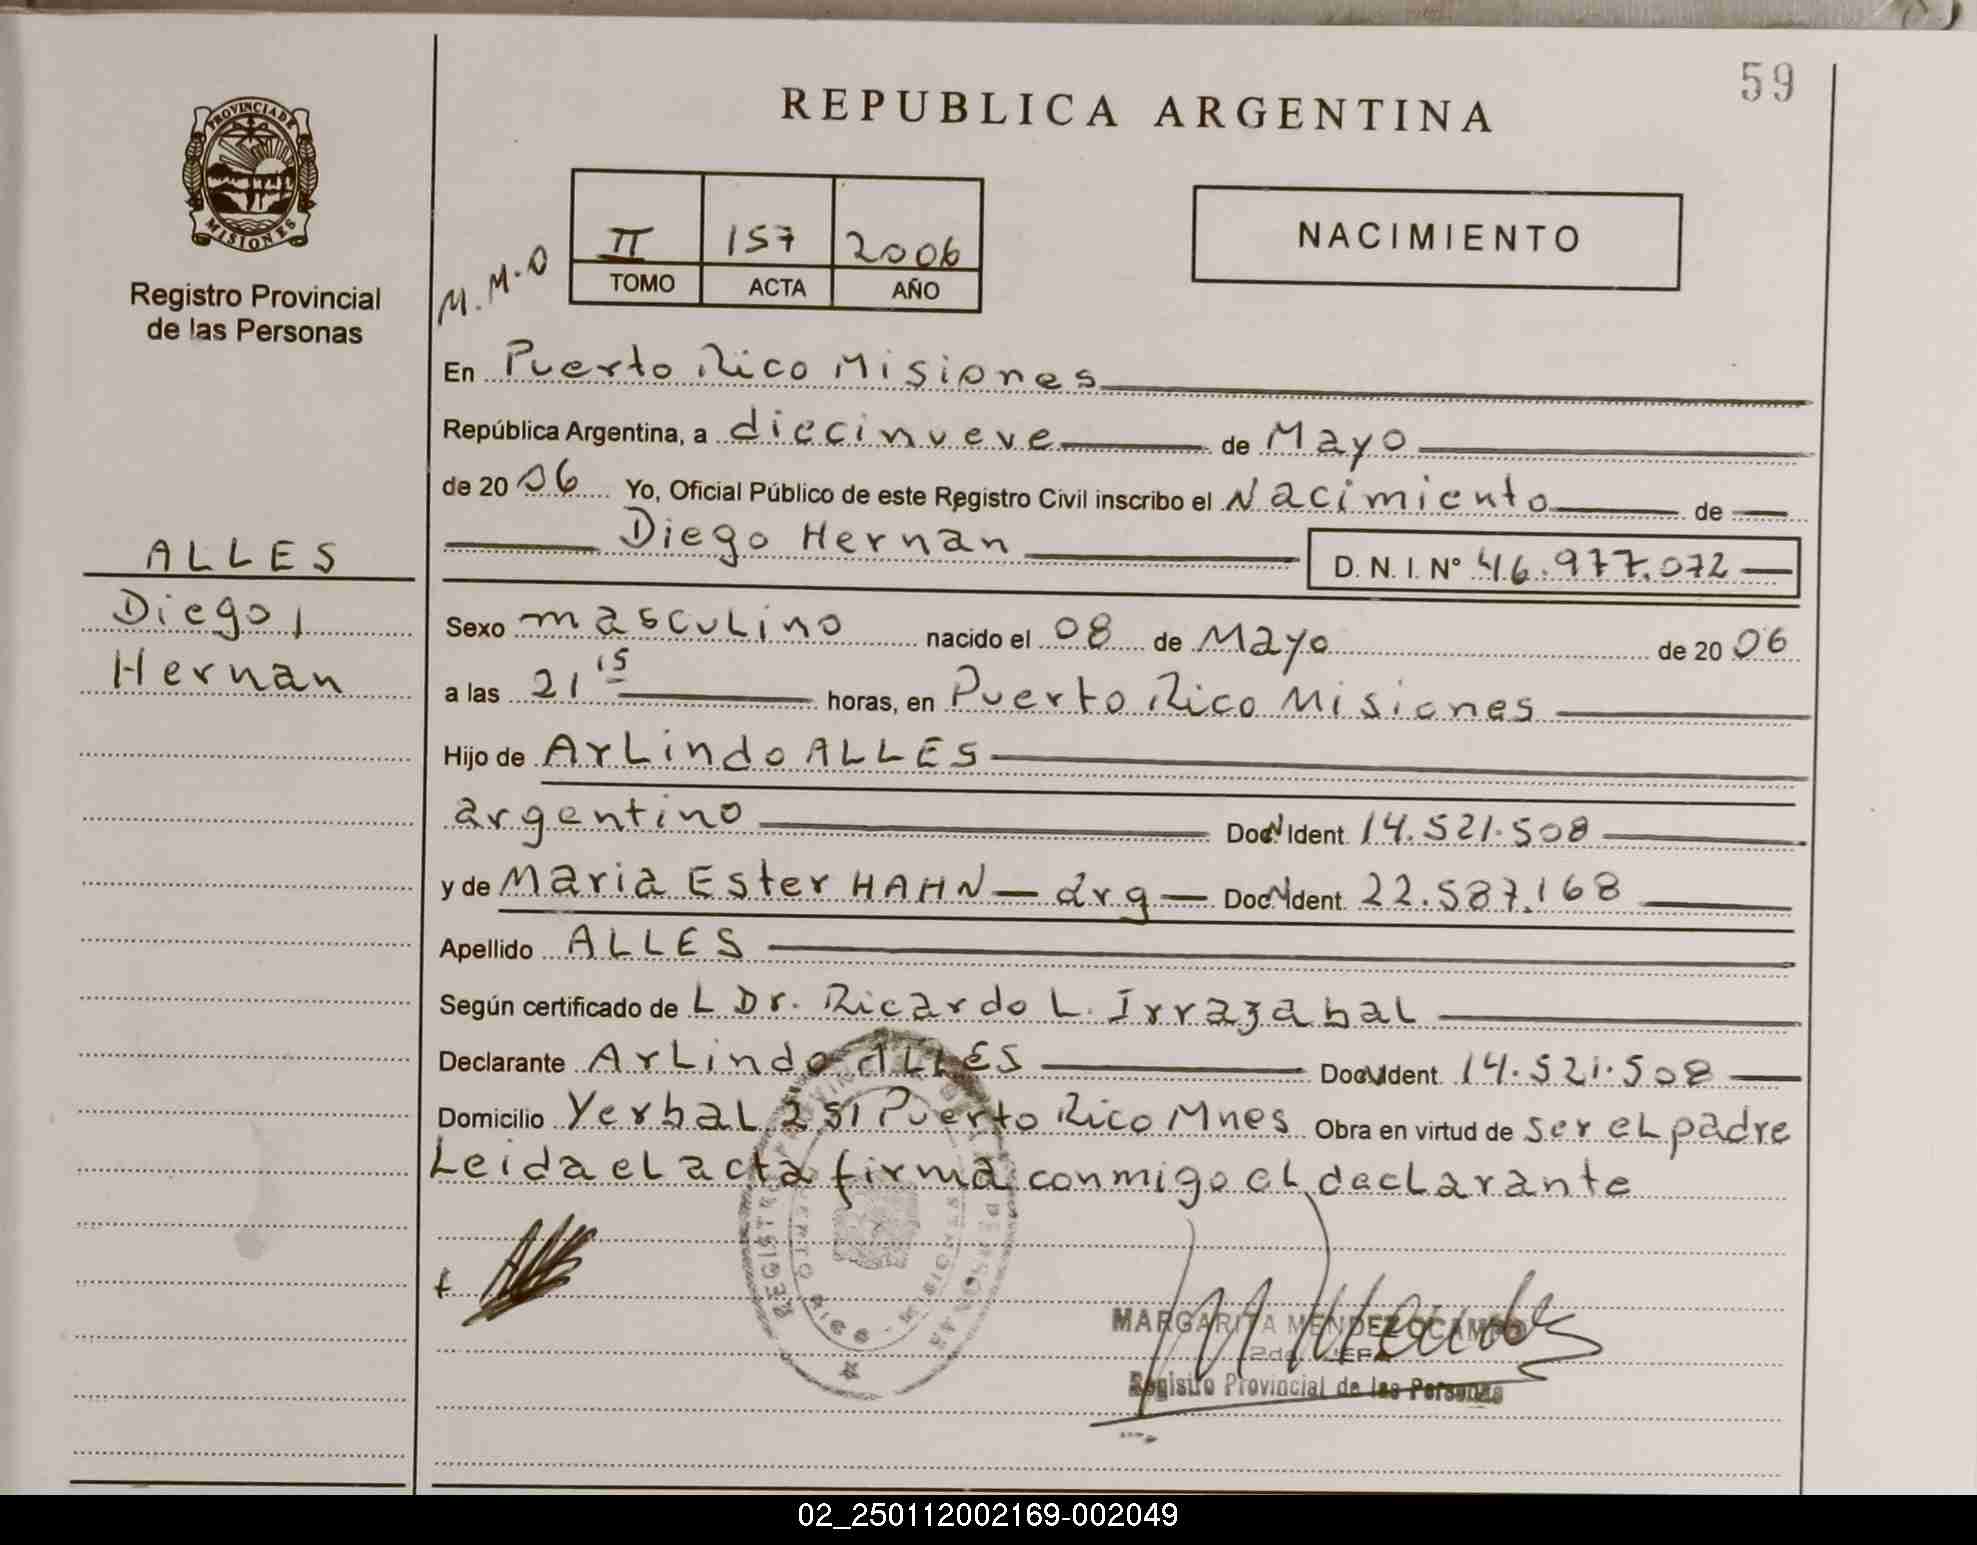 59
REPUBLICA ARGENTINA
PROVINCIA DE
MISIONES
Registro Provincial
de las Personas
M.M.O
II 157 2006
TOMO ACTA AÑO
NACIMIENTO
En Puerto Rico Misiones
República Argentina, a diecinueve de Mayo
de 2006 Yo, Oficial Público de este Registro Civil inscribo el Nacimiento de
Diego Hernan D. N. I. N° 46.977.072
ALLES
Diego
Hernan
Sexo masculino nacido el 08 de Mayo de 2006
a las 21 15 horas, en Puerto Rico Misiones
Hijo de Arlindo ALLES
argentino Doc N Ident. 14.521.508
y de Maria Ester HAHN - arg - Doc N Ident. 22.587.168
Apellido ALLES
Según certificado de L Dr. Ricardo L. Irrazabal
Declarante Arlindo ALLES Doc N Ident. 14.521.508
Domicilio Yerbal 251 Puerto Rico Mnes Obra en virtud de ser el padre
Leida el acta firma conmigo el declarante
REGISTRO PROVINCIAL DE LAS PERSONAS
PUERTO RICO - MISIONES
MARGARITA MENDEZ OCAMPO
2da. JEFA
Registro Provincial de las Personas
02_250112002169-002049